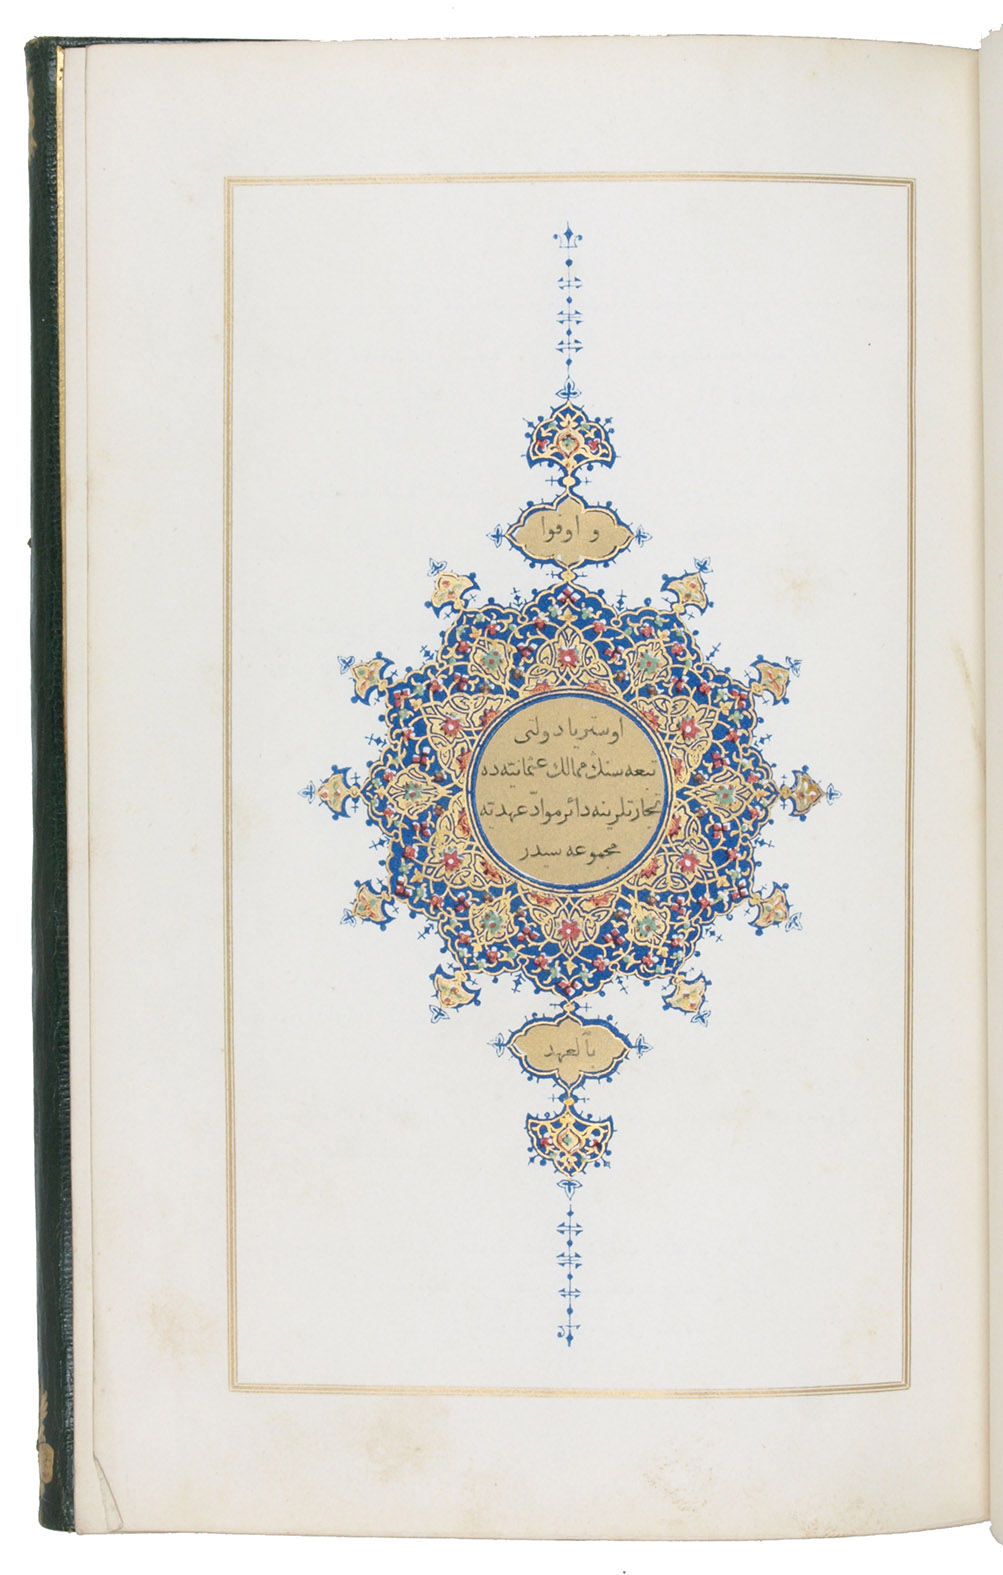 و اوفوا
اوستریا دولتی
تبعه سنڭ ممالك عثمانیته ده
تجارتلرینه دائر موادّ عهدیه
مجموعه سیدر
بآلعهد